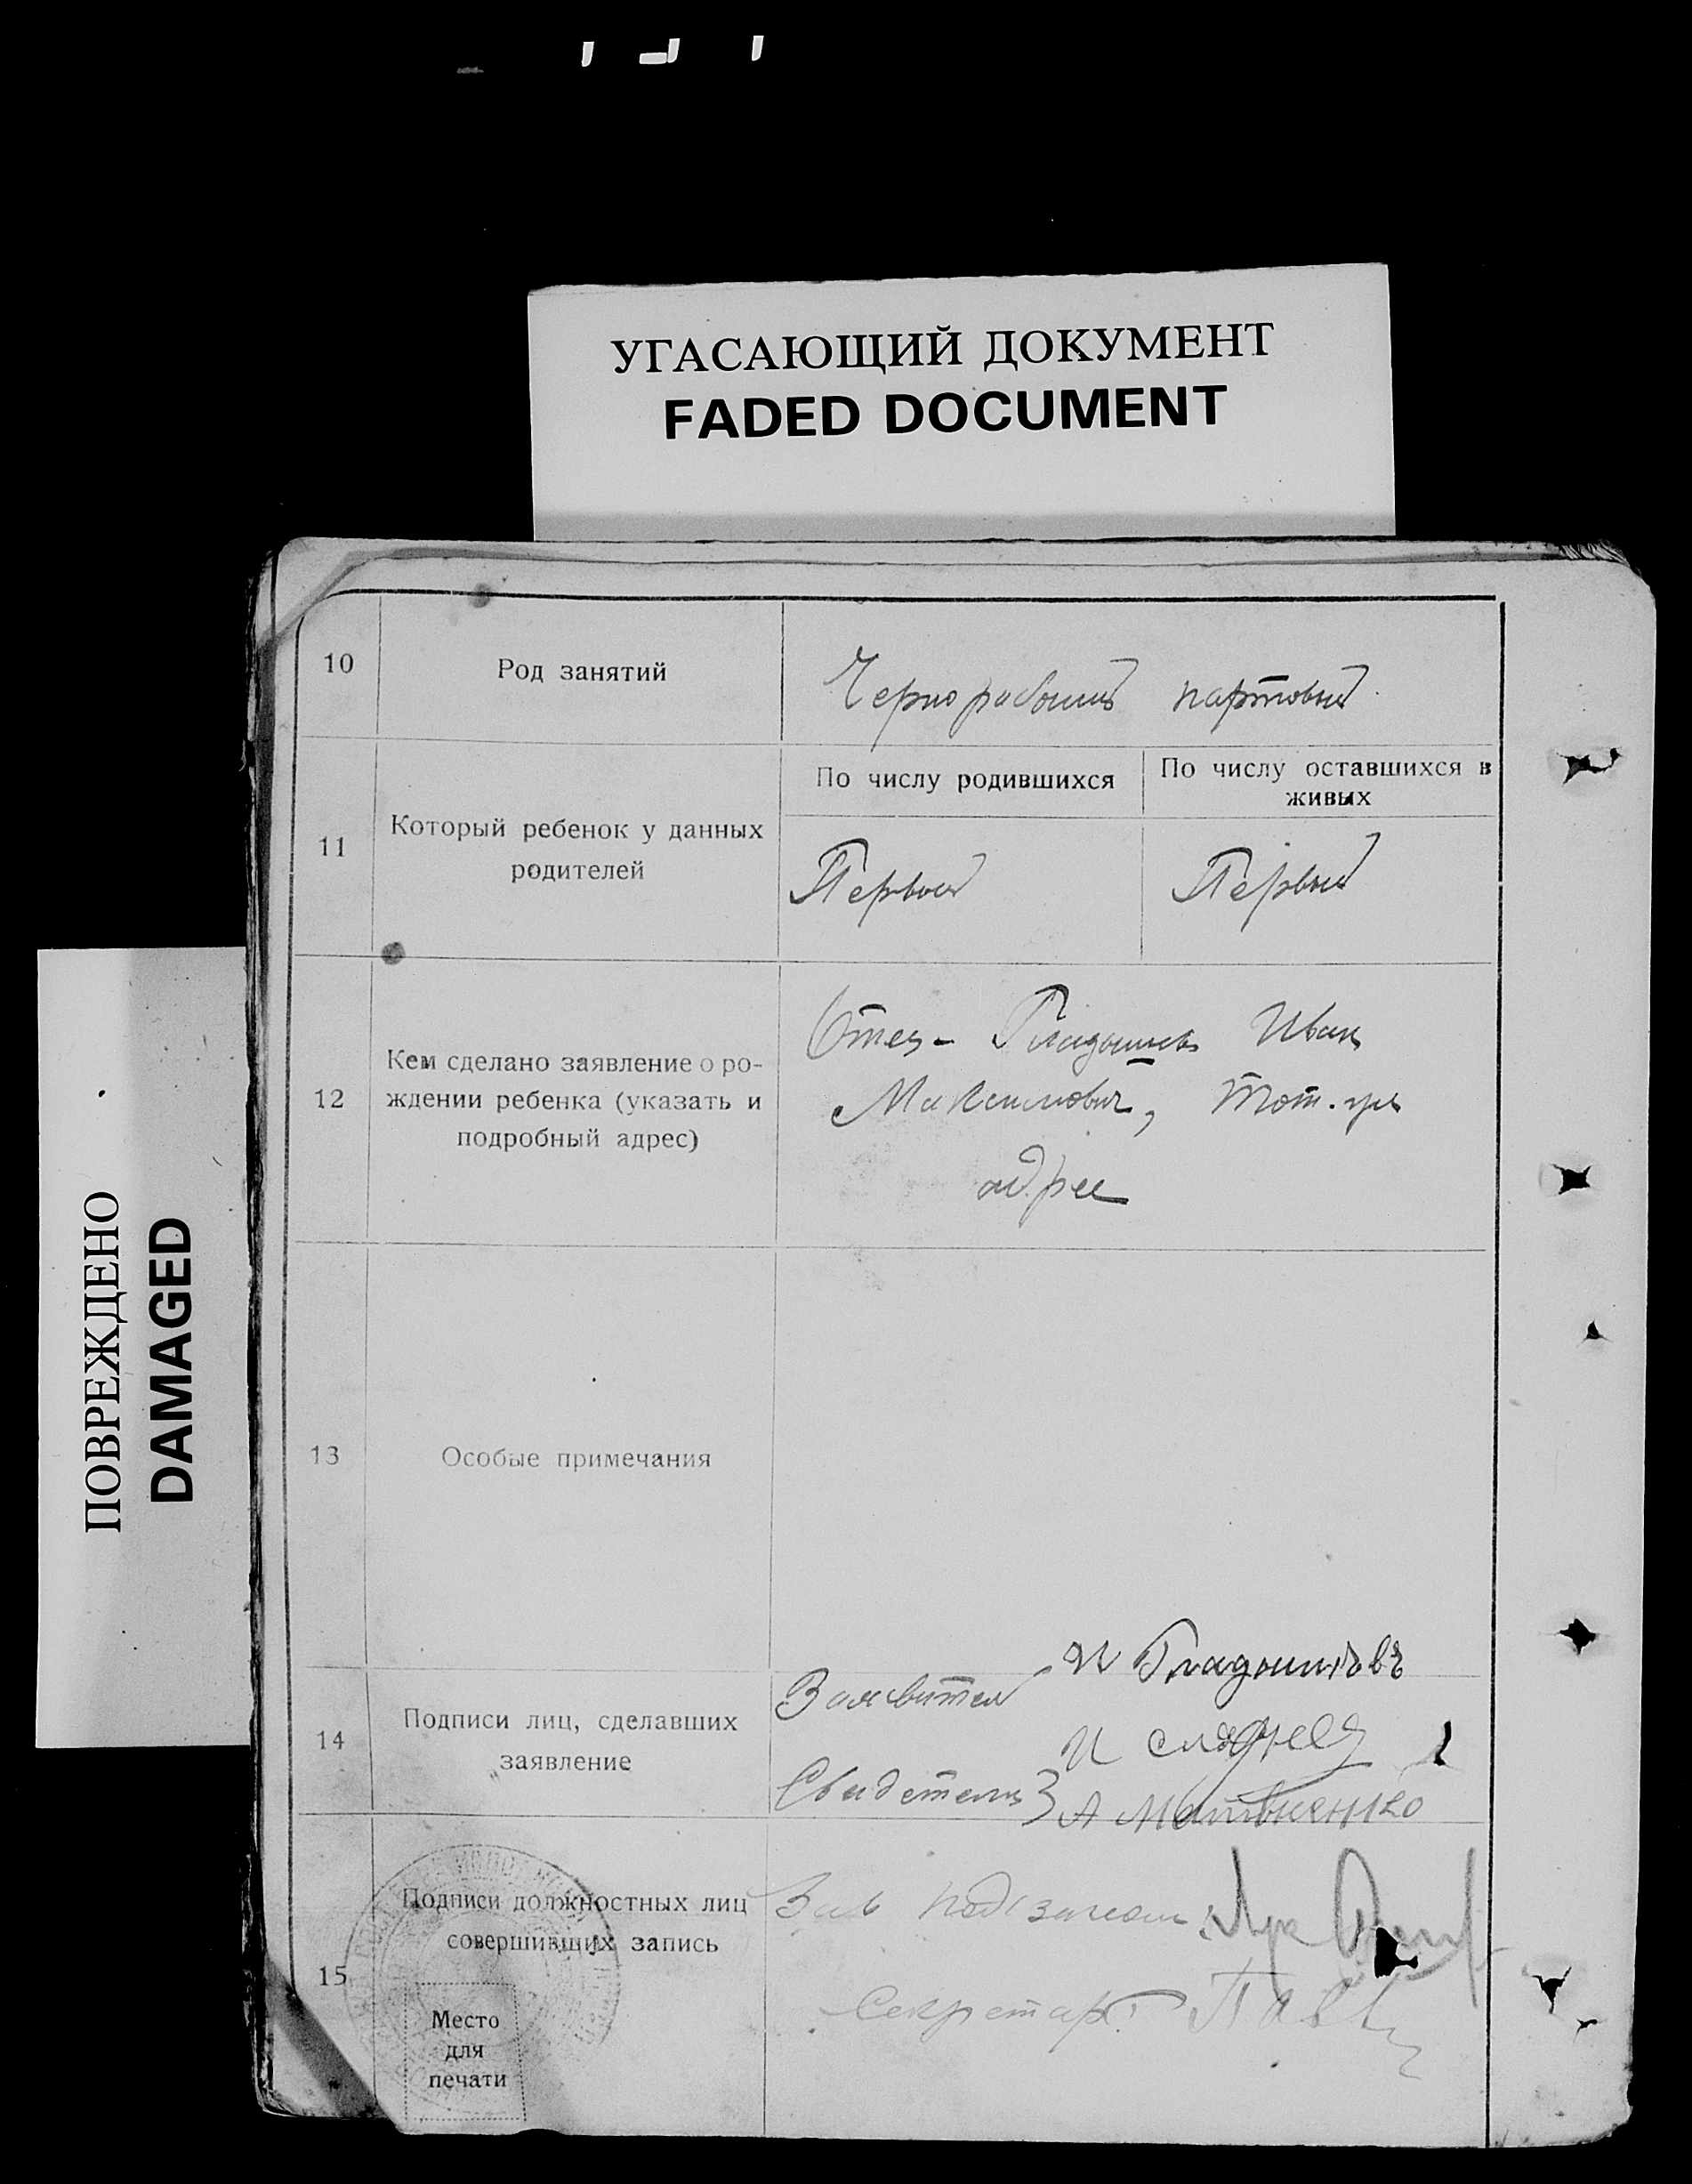 УГАСАЮЩИЙ ДОКУМЕНТ
FADED DOCUMENT
ПОВРЕЖДЕНО
DAMAGED
10
Род занятий
Чернорабочий портовый
11
Который ребенок у данных
родителей
По числу родившихся
По числу оставшихся в
живых
Первый
Первый
12
Кем сделано заявление о ро-
ждении ребенка (указать и
подробный адрес)
Отец - Гладышев Иван
Максимович, Тот-же
адрес
13
Особые примечания
14
Подписи лиц, сделавших
заявление
И Гладышевъ
Заявитель
И
Свидетели
А Матвиенко
15
Подписи должностных лиц
совершивших запись
Место
для
печати
Зав
Секретарь